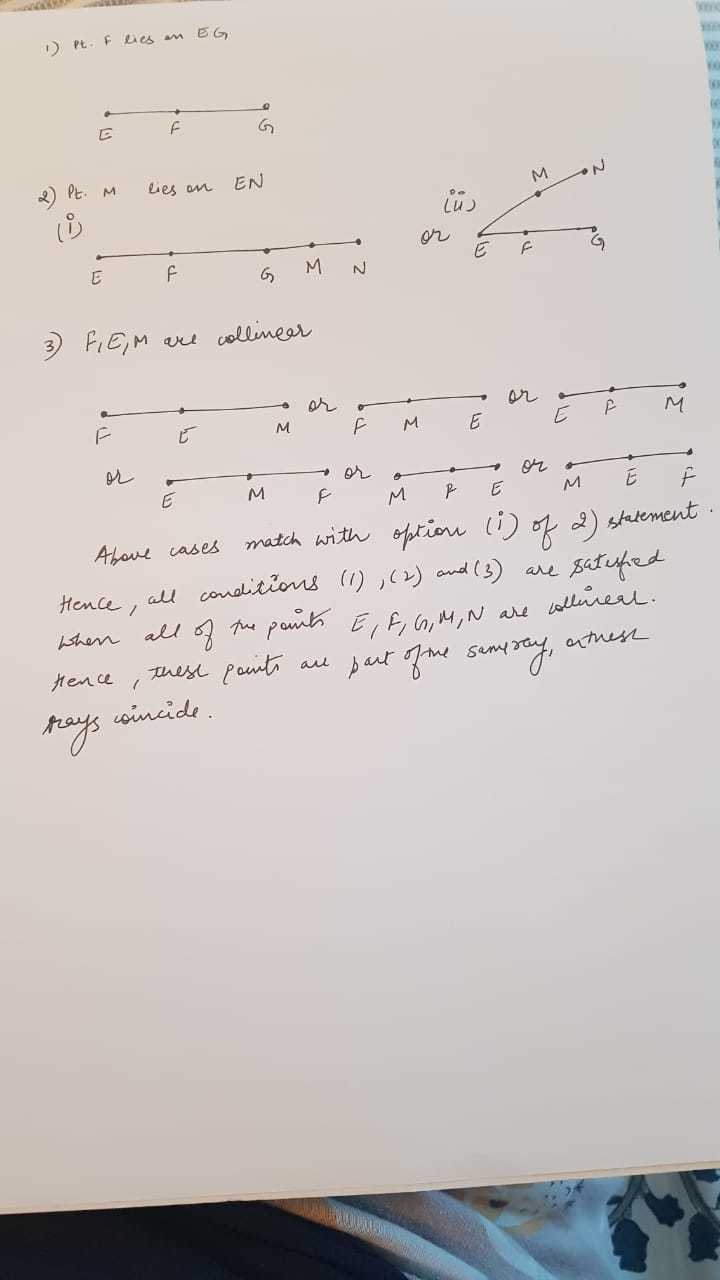 1) Pt. F lies on EG
E F G
2) Pt. M lies on EN
(i)
E F G M N
or (ii)
E F G M N
3) F, E, M are collinear
F E M or F M E or E F M
or E M F or M F E or M E F
Above cases match with option (i) of 2) statement.
Hence, all conditions (1), (2) and (3) are satisfied
when all of the points E, F, G, M, N are collinear.
Hence, these points are part of the same ray, or these
rays coincide.